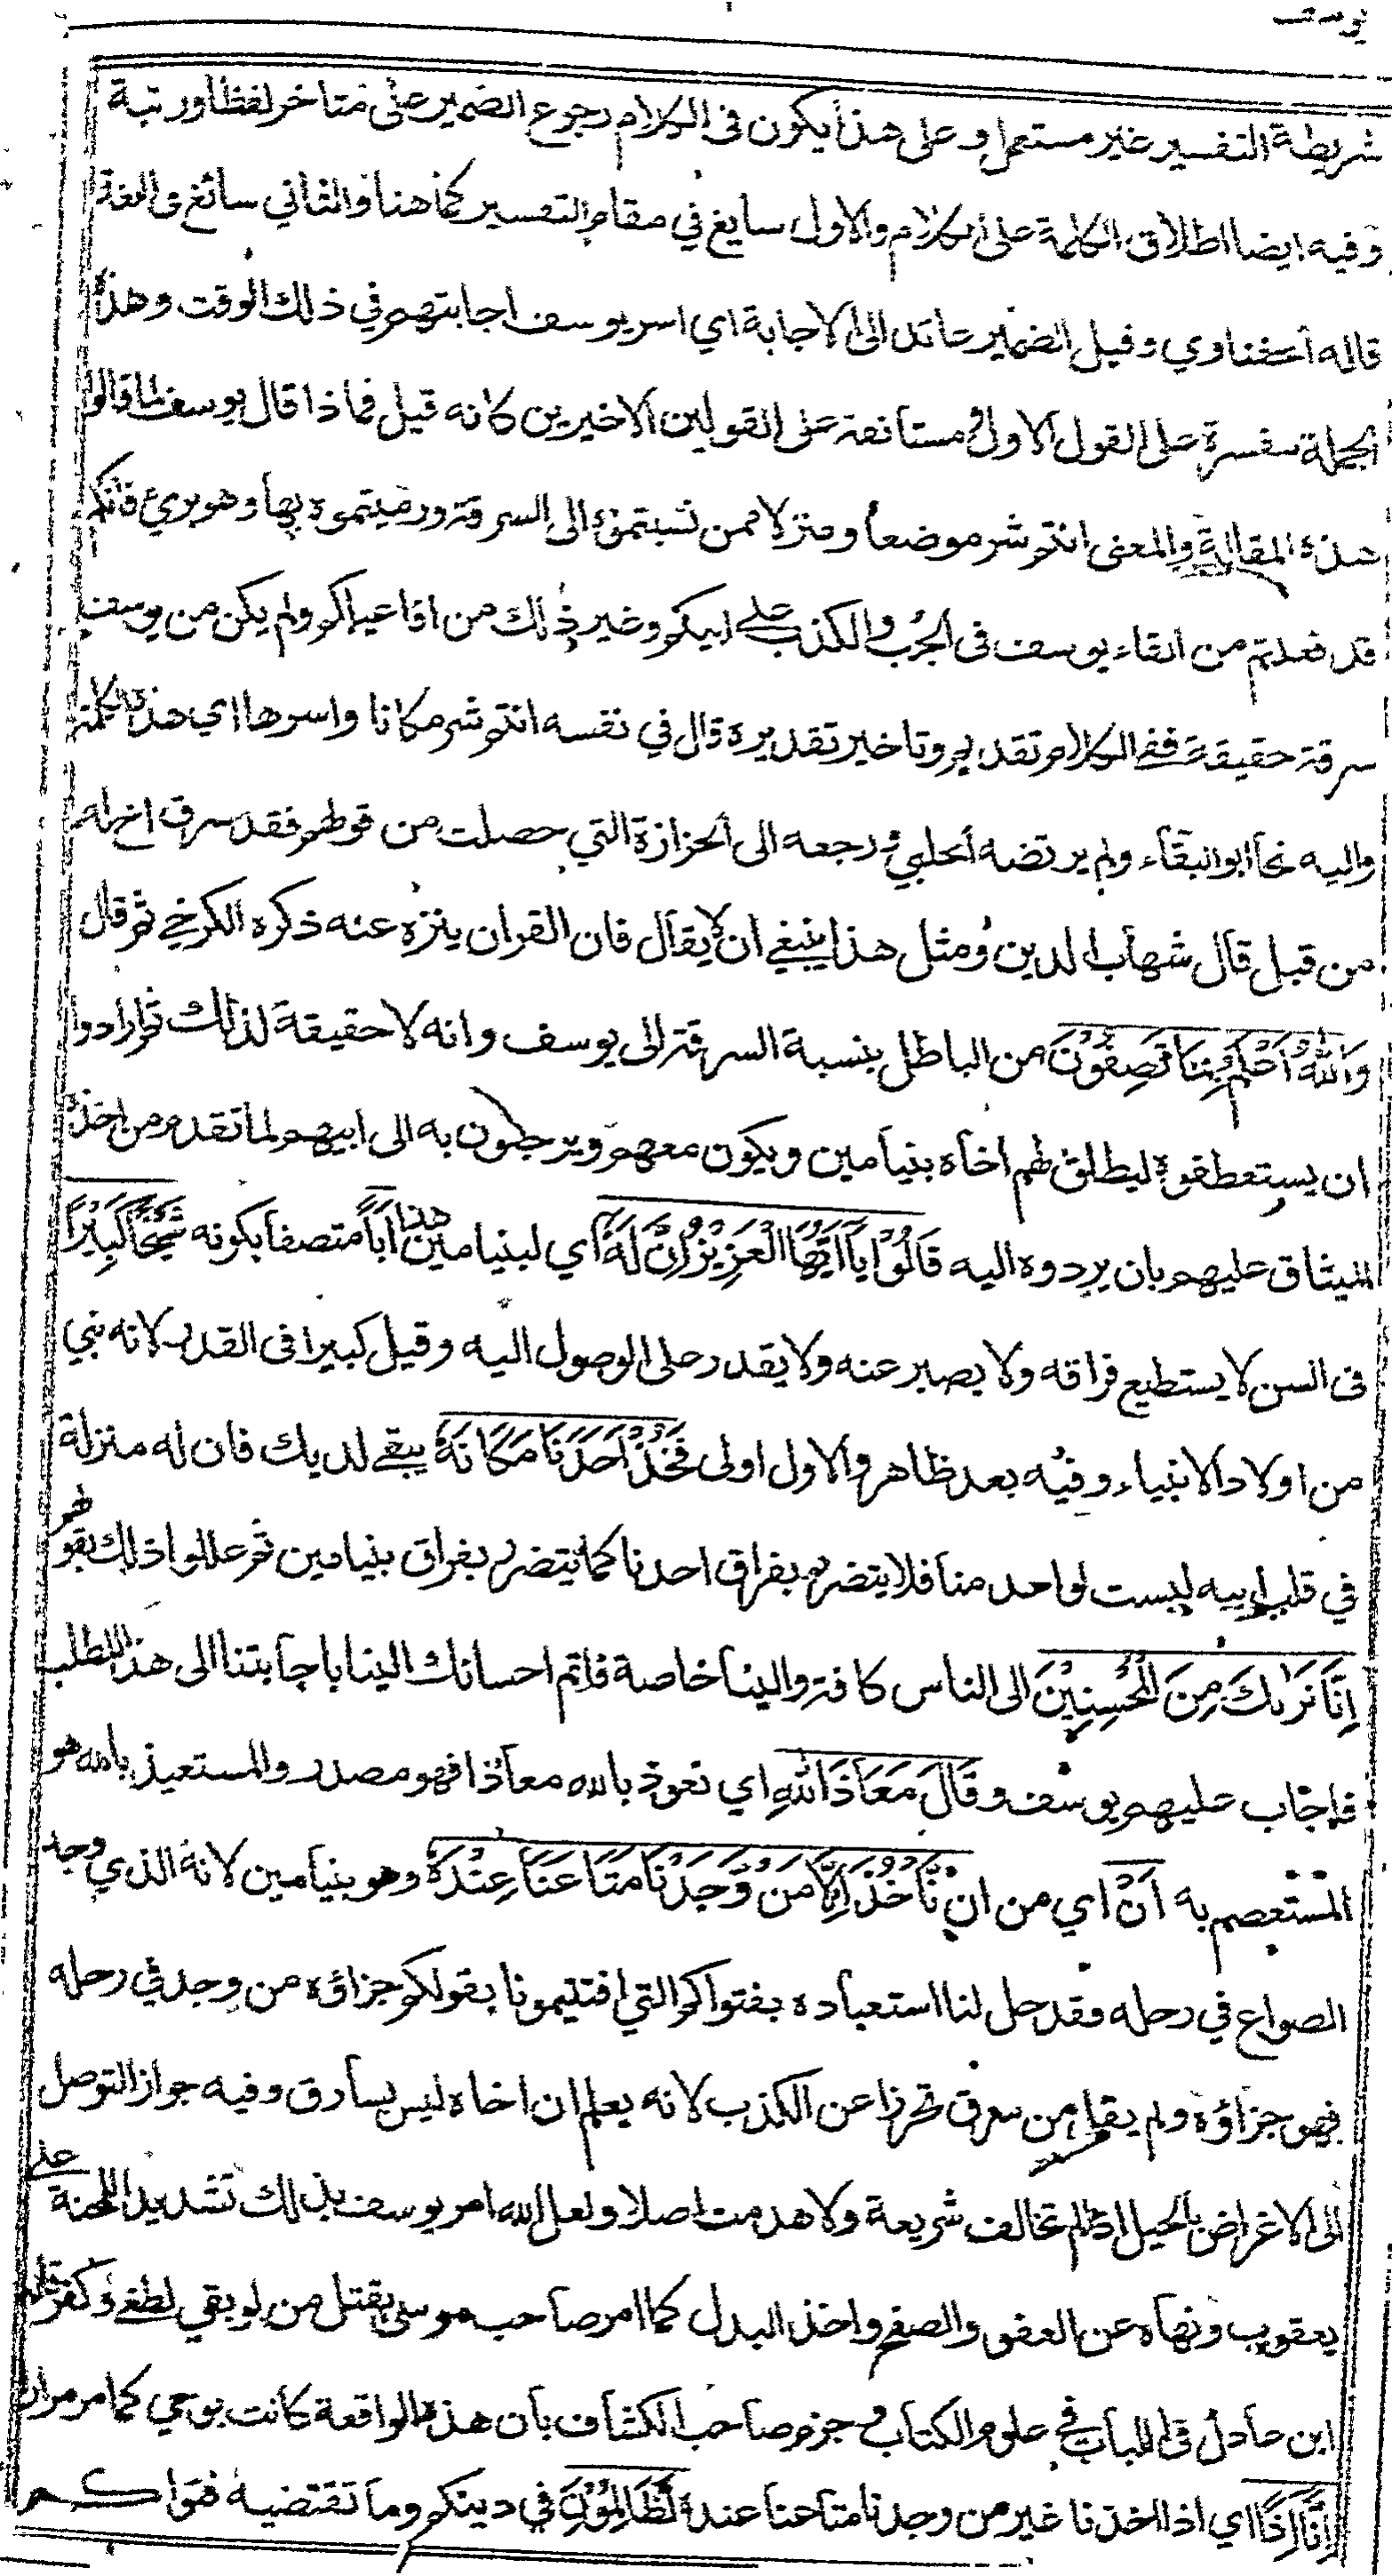 يوسف
شريطة التفسير غير مستعمل وعلى هذا يكون في الكلام رجوع الضمير على متاخر لفظا ورتبة
وفيه ايضا اطلاق الكلمة على الكلام والاول سايغ في مقام التفسير كما هنا والثاني سائغ في اللغة
قاله الحفناوي وقيل الضمير عائد الى الاجابة اي اسر يوسف اجابتهم في ذلك الوقت وهذه
الجملة مفسرة على القول الاول ومستانفة على القولين الاخيرين كانه قيل فماذا قال يوسف لما قالوا
هذه المقالة والمعنى انتم شر موضعا ومنزلا ممن نسبتموه الى السرقة ورميتموه بها وهو بريئ فانكم
قد فعلتم من القاء يوسف في الجب والكذب على ابيكم وغير ذلك من افاعيلكم ولم يكن من يوسف
سرقة حقيقة ففي الكلام تقديم وتاخير تقديره قال في نفسه انتم شر مكانا واسرها اي هذه الكلمة
واليه نحا ابو البقاء ولم يرتضه الحلبي رجعه الى الحزازة التي حصلت من قولهم فقد سرق اخ له
من قبل قال شهاب الدين ومثل هذا ينبغي ان لا يقال فان القران ينزه عنه ذكره الكرخي ثم قال
وَاللّٰهُ اَعْلَمُ بِمَا تَصِفُوْنَ من الباطل بنسبة السرقة الى يوسف وانه لا حقيقة لذلك ثم ارادوا
ان يستعطفوه ليطلق لهم اخاه بنيامين ويكون معهم ويرجعون به الى ابيهم لما تقدم من اخذه
الميثاق عليهم بان يردوه اليه قَالُوْا يَا اَيُّهَا الْعَزِيْزُ اِنَّ لَهٗ اي لبنيامين هذا اَبًا متصفا بكونه شَيْخًا كَبِيْرًا
في السن لا يستطيع فراقه ولا يصبر عنه ولا يقدر على الوصول اليه وقيل كبيرا في القدر لانه نبي
من اولاد الانبياء وفيه بعد ظاهر والاول اولى فَخُذْ اَحَدَنَا مَكَانَهٗ يبقى لديك فان له منزلة
في قلب ابيه ليست لواحد منا فلا يتضرر بفراق احدنا كما يتضرر بفراق بنيامين ثم عللوا ذلك بقولهم
اِنَّا نَرٰىكَ مِنَ الْمُحْسِنِيْنَ الى الناس كافة والينا خاصة فاتم احسانك الينا باجابتنا الى هذا المطلب
فاجاب عليهم يوسف وقَالَ مَعَاذَ اللّٰهِ اي نعوذ بالله معاذا فهو مصدر والمستعيذ بالله هو
المستعصم به اَنْ اي من ان نَّأْخُذَ اِلَّا مَنْ وَّجَدْنَا مَتَاعَنَا عِنْدَهٗ وهو بنيامين لانه الذي وجد
الصواع في رحله وقد حل لنا استعباده بفتواكم التي افتيتمونا بقولكم جزاؤه من وجد في رحله
فهو جزاؤه ولم يقل من سرق تحرزا عن الكذب لانه يعلم ان اخاه ليس بسارق وفيه جواز التوصل
الى الاغراض بالحيل اذا لم تخالف شريعة ولا هدمت اصلا ولعل الله امر يوسف بذلك تشديد المحنة على
يعقوب ونهاه عن العفو والصفح واخذ البدل كما امر صاحب موسى بقتل من لو بقي لطغى وكفر قاله
ابن عادل في اللباب في علوم الكتاب وجزم صاحب الكشاف بان هذه الواقعة كانت بوحي كما مر مرارا
اِنَّا اِذًا اي اذا اخذنا غير من وجدنا متاعنا عنده لَّظٰلِمُوْنَ في دينكم وما تقتضيه فتواكم